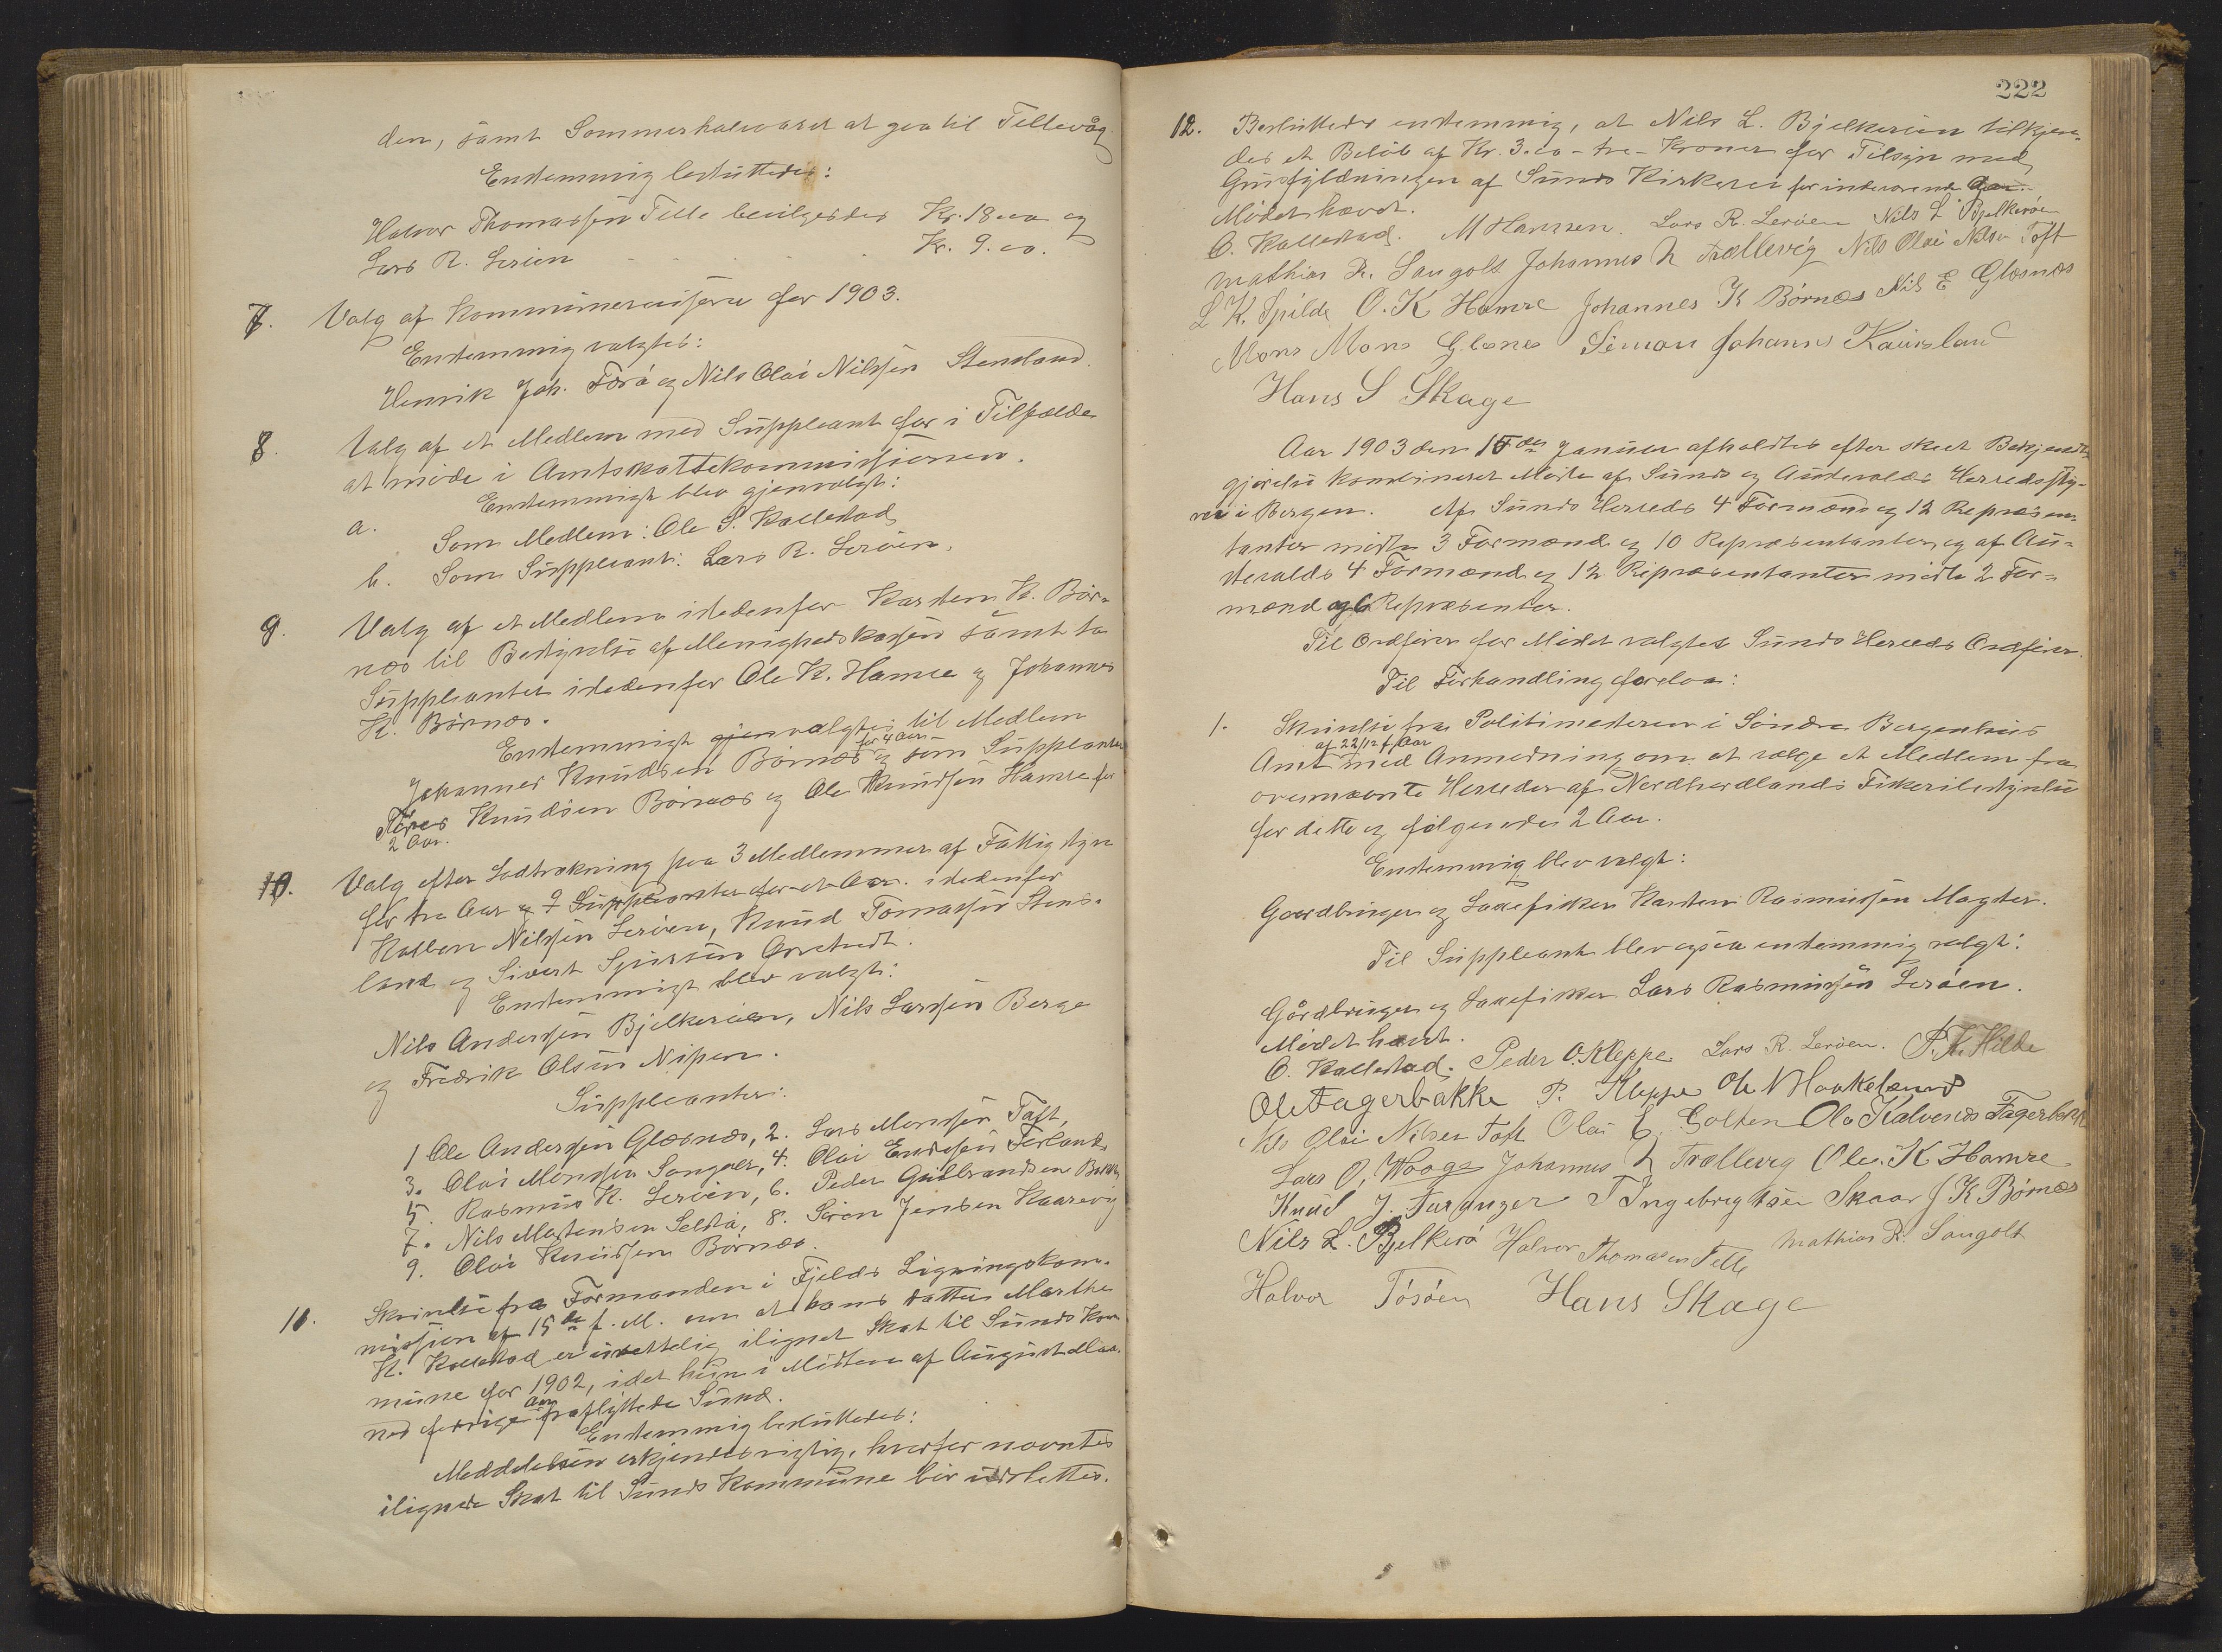 den, samt Sommerhalvaaret at gaa til Tellevåg
Enstemmig besluttedes:
Halvor Thomassen Telle bevilgedes Kr. 18.00 og
Lars R. Leröen - - - - - Kr. 9.00.
7. Valg af Kommunerevisorer for 1903.
Enstemmig valgtes:
Henrik Joh. Forö og Nils Olai Nilssen Stensland.
8. Valg af et Medlem med Suppleant for i Tilfælde
at möde i Amtsskattekommissionen.
Enstemmigt blev gjenvalgt:
a. Som Medlem: Ole S. Kallestad
b. Som Suppleant: Lars R. Leröen.
9. Valg af et Medlem istedenfor Karsten K. Bör-
næs til Bestyrelse af Menighedskassen samt to
Suppleanter istedenfor Ole K. Hamre og Johannes
K. Börnæs.
Enstemmigt gjenvalgtes til Medlem
for 4 Aar
Johannes Knudsen Börnæs og som Suppleanter
Knudsen Börnæs og Ole Knudsen Hamre for
2 Aar.
10. Valg efter Lodtrækning paa 3 Medlemmer af Fattigstyre
for tre Aar og 9 Suppleanter for et Aar istedenfor
Nilssen Leröen, Knud Tomassen Stens-
land og Sivert Sjursen Gravdal.
Enstemmigt blev valgt:
Nils Anderssen Bjelkeröen, Nils Larssen Berge
og Fredrik Olsen Nipen.
Suppleanter:
1 Ole Anderssen Glæsnæs, 2. Lars Monssen Toft,
3. Olai Monssen Sangolt, 4. Olai Endresen Forland
5. Rasmus K. Leröen, 6. Peder Gulbrandsen
7. Nils Mortensen Selstö, 8. Sören Jensen Kaarevig
9. Olai Knudssen Börnæs.
11. Skrivelse fra Formanden i Fjelds Ligningskom-
mission af 15de f. M. om at hans datter Marthe
K. Kallestad er urettelig ilignet Skat til Sunds Kom-
mune for 1902, idet hun i Midten af August Maa-
Aar
ned forrige fraflyttede Sund.
Enstemmig besluttedes:
Meddelelsen erkjendes rigtig, hvorfor nævnte
ilignede Skat til Sunds Kommune bör udslettes.
222
12. Besluttedes enstemmig, at Nils L. Bjelkeröen tilkjen-
des et Belöb af Kr. 3.00 - tre - Kroner for Tilsyn med
Grusfyldningen af Sunds Kirkevei for indeværende Aar.
Mödet hævet.
O. Kallestad. M Hanssen. Lars R. Leröen Nils L Bjelkeröen
Mathias R. Sangolt Johannes N Trællevig Nils Olai Nilsen Toft
L K. Spilde O. K Hamre Johannes K Börnæs Nils E Glæsnæs
Mons Mons Glesnes Simon Johannes Kausland
Hans S Skage
Aar 1903 den 15de Januar afholdtes efter skeet Bekjendt-
gjörelse kombineret Möde af Sunds og Austevolds Herredssty-
rer i Bergen. Af Sunds Herreds 4 Formænd og 12 Repræsen-
tanter mödte 3 Formænd og 10 Repræsentanter og af Au-
stevolds 4 Formænd og 12 Repræsentanter mödte 2 For-
mænd og 6 Repræsenter.
Til Ordförer for Mödet valgtes Sunds Herreds Ordförer.
Til Forhandling forelaa:
1. Skrivelse fra Politimesteren i Söndre Bergenhus
af 22/12 f. Aar
Amt med Anmodning om at vælge et Medlem fra
ovennævnte Herreder af Nordhordlands Fiskeribestyrelse
for dette og fölgende 2 Aar.
Enstemmig blev valgt:
Gaardbruger og Laxefisker Karsten Rasmussen Magster.
Til Suppleant blev ogsaa enstemmig valgt:
Gårdbruger og Laxefisker Lars Rasmussen Leröen.
Mödet hævet.
O. Kallestad. Peder O. Kleppe Lars R. Leröen. P. K. Hilde
Ole Fagerbakke P. Kleppe Ole N Haakelsund
Nils Olai Nilsen Toft Olai E. Golten Ole Kalvenes Fagerbakke
Lars O. Waage Johannes N Trællevig Ole. K Hamre
Knud J. Turanger T Ingebrigtsen Skaar J K Börnæs
Nils L. Bjelkerö Halvor Thomasen Telle Mathias R. Sangolt
Halvor Tösöen Hans Skage